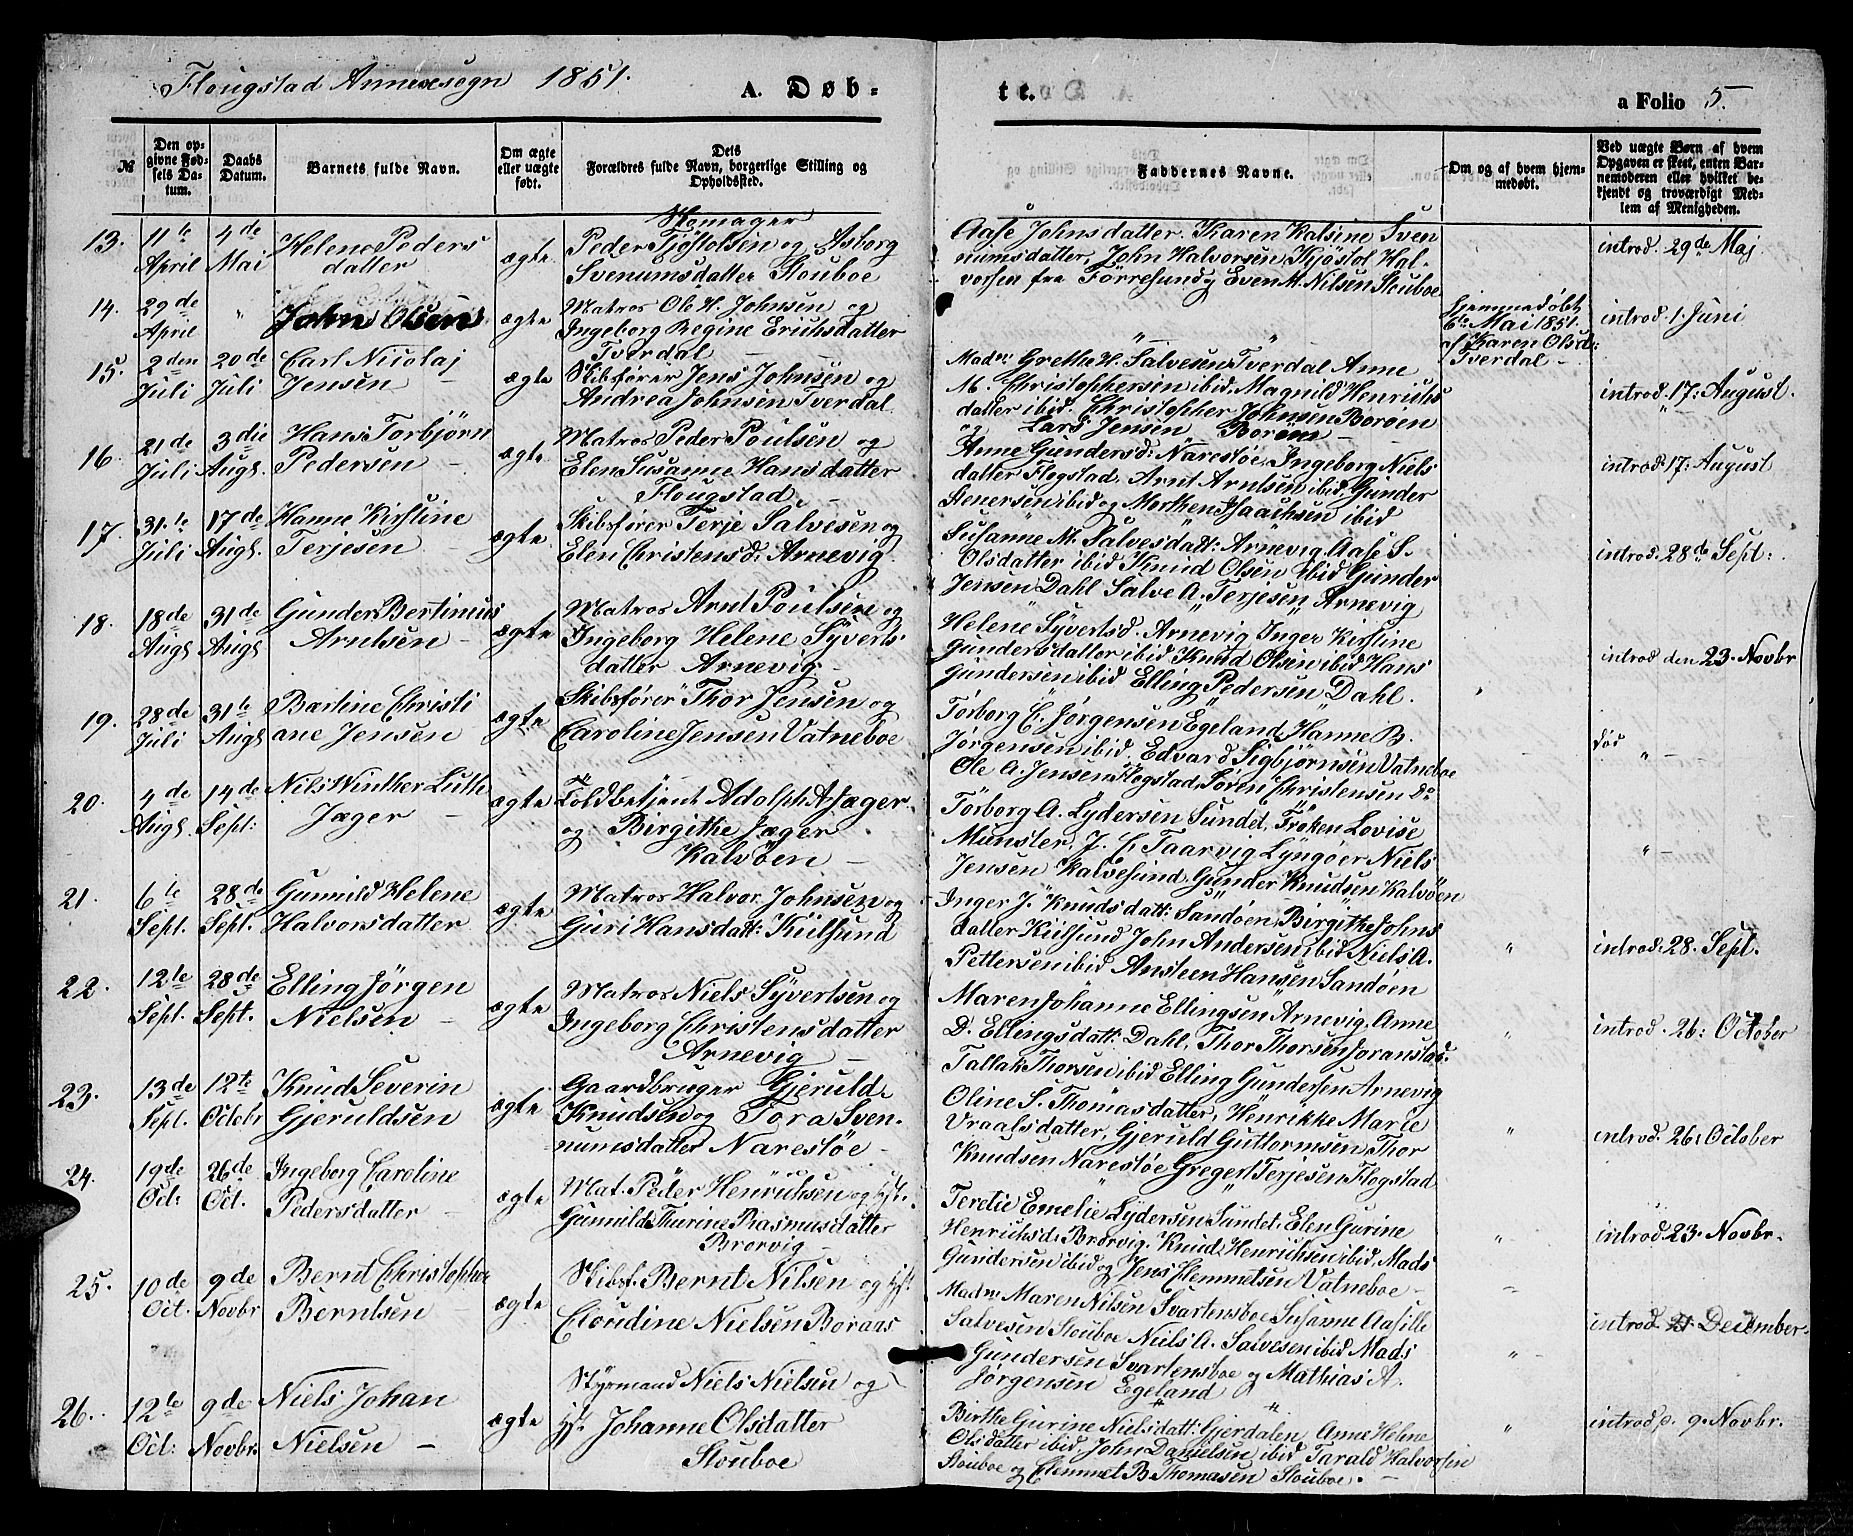 Flougstad Annexsogn 1851.
A. Døb-
te.
a Folio 5.
№
Den opgivne Fødsels Datum.
Daabs Datum.
Barnets fulde Navn.
Om ægte eller uægte født.
Dets Forældres fulde Navn, borgerlige Stilling og Opholdssted.
Faddernes Navne.
Om og af hvem hjemmedøbt.
Ved uægte Børn af hvem Opgaven er skeet, enten Barnemoderen eller hvilket bekjendt og troværdigt Medlem af Menigheden.
13.
11te April
4de Mai
Helene Peders
datter
ægte
Skomager
Peder Tjøstolsen og Asborg
Svenumsdatter Stouboe
Aase Johnsdatter. Karen Kalsine Sven
numsdatter, John Halvorsen, Kjøstol Hal-
vorsen fra Törresund, Even M. Nilsen Stouboe
introd. 29de Maj
14.
29de April
"
John Olsen
ægte
Matros Ole H. Johnsen og
Ingeborg Regine Erichsdatter
Tverdal —
" — "
Hjemmedøbt
6te Mai 1851.
af Karen Olsd:
Tverdal –
introd. 1. Juni
15.
2den Juli
20de Juli
Carl Nicolaj
Jensen –
ægte
Skibsfører Jens Johnsen og
Andrea Johnsen Tverdal.
Madm Grethe H. Salvesen Tverdal Anne
M. Christophersen ibid. Magnild Henrichs
datter ibid. Christopher Johnsen Boröen
og Lars Jensen Boröen —
introd. 17: August.
16.
21de Juli
3die Augt
Hans Torbjørn
Pedersen –
ægte
Matros Peder Poulsen og
Elen Susanne Hansdatter
Flougstad. –
Anne Gundersd: Narestøe, Ingeborg Niels
datter Flogstad, Arnt Arntsen ibid, Gunder
Stenersen ibid og Morthen Isaachsen ibid
introd. 17: August
17.
31.te Juli
17de Augt.
Hanne Kirstine
Terjesen –
ægte
Skibsfører Terje Salvesen og
Elen Christensd: Arnevig.
Susanne M. Salvesdatt: Arnevig, Aase S.
Olsdatter ibid Knud Olsen ibid Gunder
Jensen Dahl Salve A. Terjesen Arnevig
introd. 28de Sept:
18.
18de Augt
31de Augt
Gunder Bertinius
Arntsen –
ægte
Matros Arnt Poulsen og
Ingeborg Helene Syverts
datter Arnevig –
Helene Syvertsd. Arnevig Inger Kirstine
Gundersdatter ibid Knud Olsen ibid Hans
Gundersen ibid Elling Pedersen Dahl.
"
introd den 23. Novbr
19.
28de Juli
31te Augt
Bartine Christi
ane Jensen
ægte
Skibsfører Thor Jensen og
Caroline Jensen Vatneboe
Torborg C. Jørgensen Egeland, Hanne B.
Jørgensen ibid, Edvard Sigbjørnsen Vatneboe
Ole A. Jensen Flogstad, Sören Christensen Do
–
død " –
20.
4de Augt.
14de Sept:
Nils Winther Luth
Jæger –
ægte
Toldbetjent Adolph A Jæger
og Birgithe Jæger
Kalvöen –
Torborg A. Lydersen Sundet, Frøken Lovise
Munster, J. C. Taarvig Lyngöer Niels
Jensen Kalvesund, Gunder Knudsen Kalvöen
" –
21.
6te Sept.
28de Sept.
Gunnild Helene
Halvorsdatter
ægte
Matros Halvor Johnsen og
Guri Hansdatt: Kiilsund
Inger J. Knudsdatt: Sandöen, Birgithe Johns
datter Kiilsund John Andersen ibid Niels A.
Pettersen ibid Ansteen Hansen Sandöen
"
introd: 28. Sept.
22.
12te Sept.
28de Sept.
Elling Jörgen
Nielsen –
ægte
Matros Niels Syvertsen og
Ingeborg Christensdatter
Arnevig –
Maren Johanne Ellingsen Arnevig, Anne
D. Ellingsdatt: Dahl, Thor Thorsen Joranstad.
Tallak Thorsen ibid Elling Gundersen Arnevig
"
introd. 26: October
23.
13de Sept.
12te Octobr
Knud Severin
Gjeruldsen
ægte
Gaardbruger Gjeruld
Knudsen og Tora Sven-
numsdatter Narestøe –
Oline S. Thomasdatter, Henrikke Marie
Vraalsdatter, Gjeruld Guttormsen, Thor
Knudsen Narestøe Gregert Terjesen Flogstad
"
introd. 26: October
24.
19de Oct:
26de Oct.
Ingeborg Caroline
Pedersdatter –
ægte
Mat. Peder Henrichsen og hst.
Gunnild Thurine Rasmusdatter
Brorvig
Teretie Emelie Lydersen Sundet, Elen Gurine
Henrichsd. Brorvig, Knud Henrichsen ibid, Mads
Gundersen ibid og Jens Clemmetsen Vatneboe –
"
introd 23. Novbr.
25.
10de Oct.
9de Novbr
Bernt Christopher
Berntsen –
ægte
Skibsf. Bernt Nilsen og hst.
Cloudine Nielsen Boraas
Madm Maren Nilsen Svartensboe Susanne Aasille
Salvesen Stouboe Niels A. Salvesen ibid Mads
Gundersen Svartensboe og Mathias A.
Jørgensen Egeland
" –
introd. 21 December.
26.
12te Oct:
9de Novbr.
Niels Johan
Nielsen –
ægte
Styrmand Niels Nielsen og
hst. Johanne Olsdatter
Stouboe
Birthe Gurine Nielsdatt: Gjerdalen, Anne Helene
Olsdatter ibid, John Danielsen ibid Tarald Halvorsen
Stouboe og Clemmet B. Thomasen Stouboe. –
"
introd. 9. Novbr.